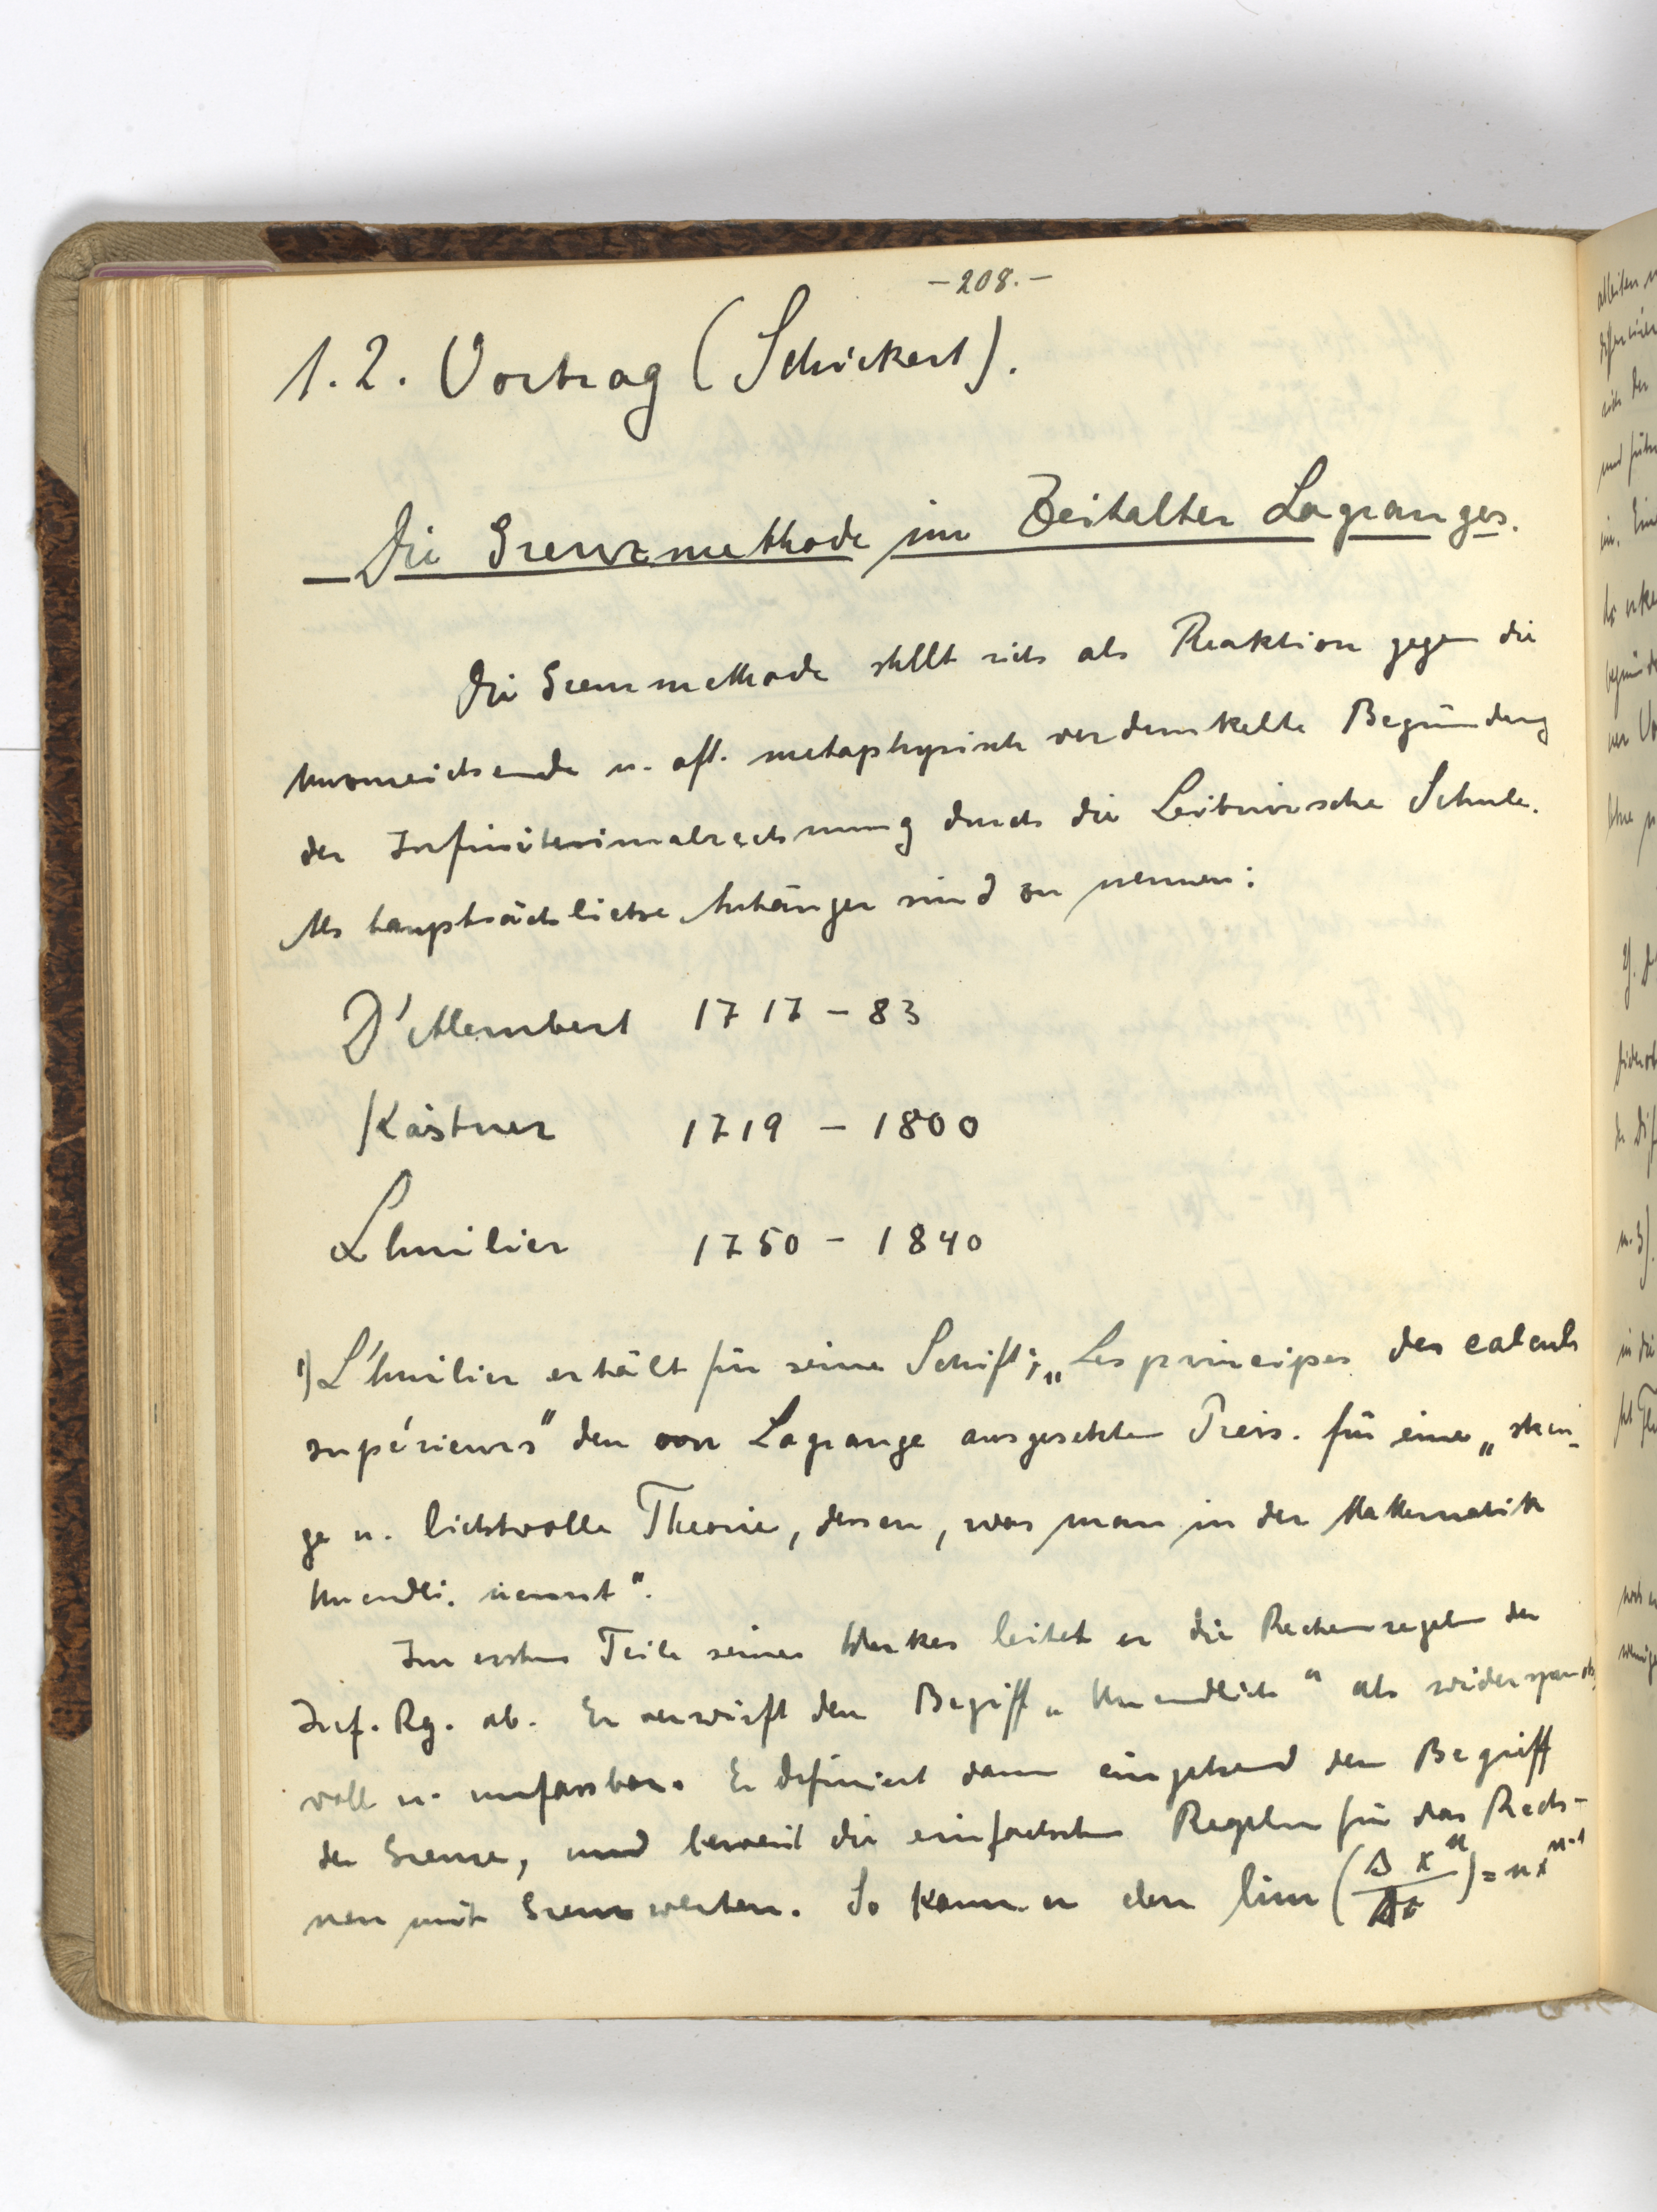 -208.-
1.2. Vortrag (Schickert).
Die Grenzmethode im Zeitalter Lagranges.
Die Grenzmethode stellt sich als Reaktion gegen die
unzureichende u. oft. metaphysisch verdunkelte Begründung
der Infinitesimalrechnung durch die Leibnizsche Schule.
Als hauptsächliche Anhänger sind zu nennen:
D'Alembert 1717 - 83
Kästner 1719 - 1800
Lhuilier 1750 - 1840
1) L'huilier erhält für seine Schrift; „Les principes des calculs
supérieurs" den von Lagrange ausgesetzten Preis. für eine „stren-
ge u. lichtvolle Theorie, dessen, was man in der Mathematik
Unendli. nennt".
Im ersten Teile seines Werkes leitet er die Rechenregeln der
Inf. Rg. ab. Er verwirft den Begriff „Unendlich" als widerspruchs
voll u. unfassbar. Er definiert dann eingehend den Begriff
der Grenze, und beweist die einfachsten Regeln für das Rech-
nen mit Grenzwerten. So kann er den lim (Δ x^n / Δx) = nx^{n-1}